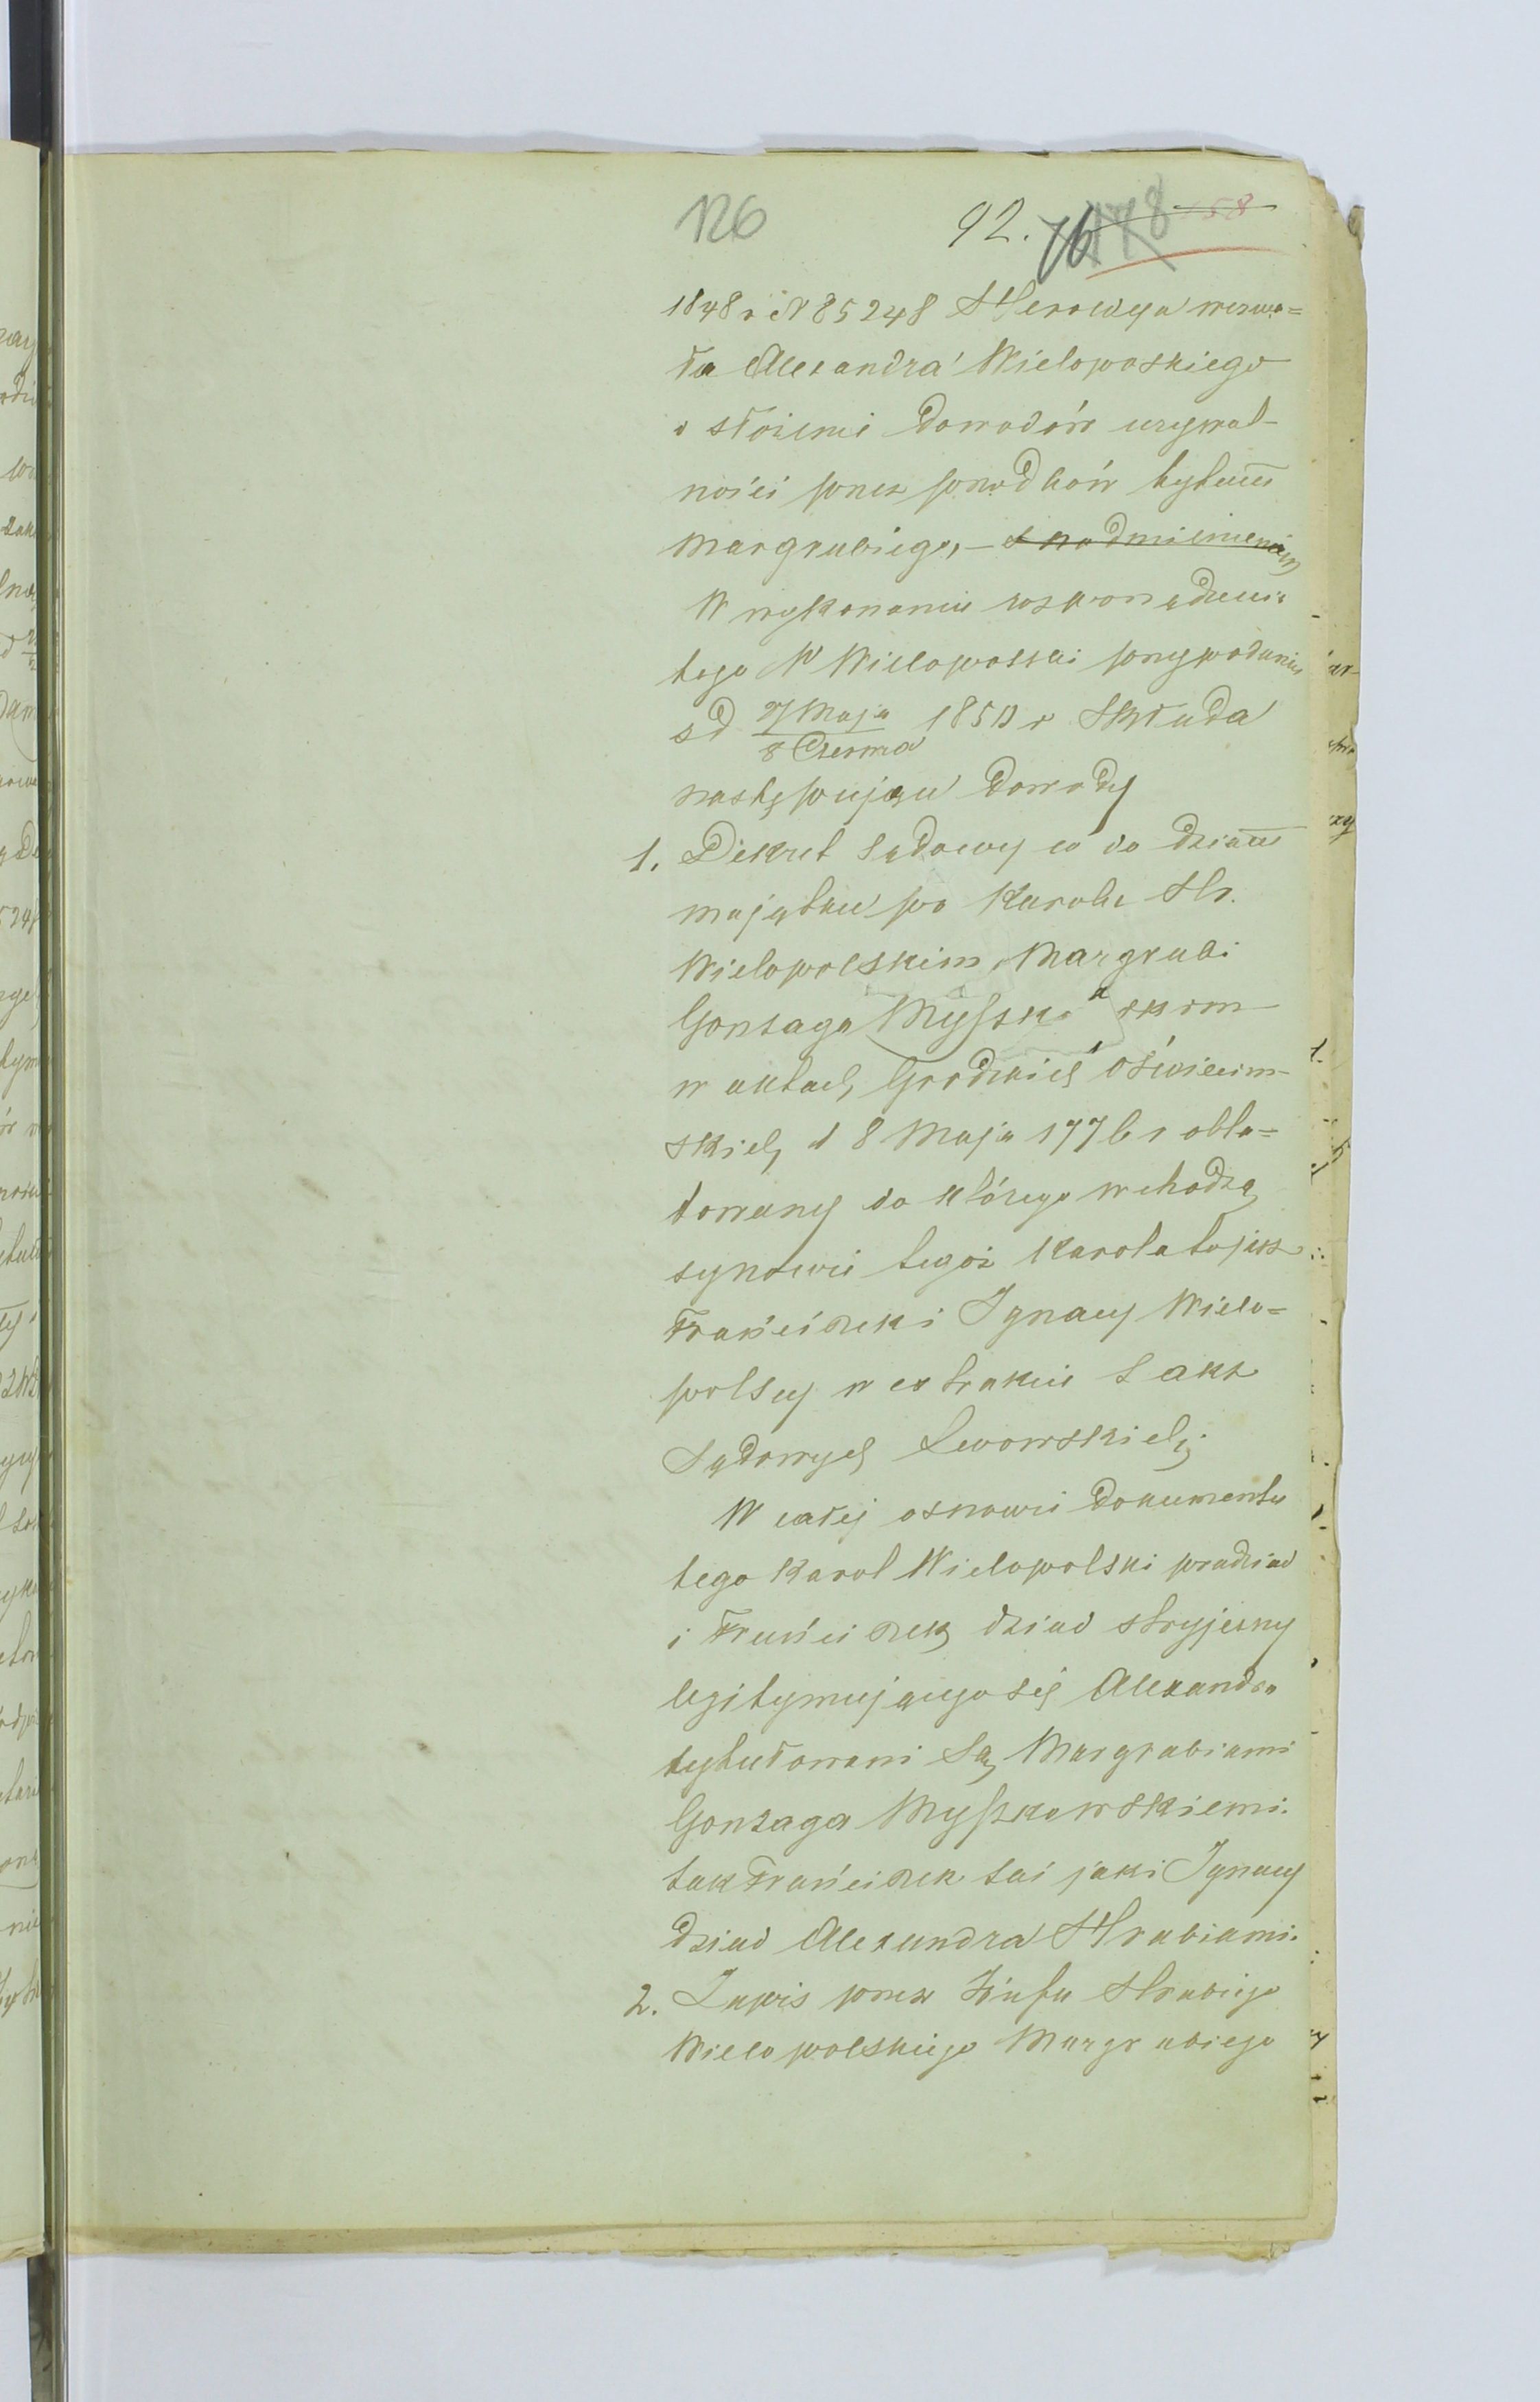 126 92. 76 178 58
1848 r N 85248 Heroldya wezwa=
ła Alexandra Wielopolskiego
o złożenie dowodów używal-
ności przez przodków tytułu
Margrabiego, – z nadmienieniem
W wykonaniu rozporządzenia
tego W Wielopolski przy podaniu
od 27 Maja / 8 Czerwca 1850 r składa
następujące dowody
1. Dekret Sądowy co do działu
majątku po Karolu Hr.
Wielopolskim, Margrabi
Gonzaga Myszk
w aktach Grodzkich Oświecim-
skich d 8 Maja 1776 r obla=
towany do którego wchodzą
synowie tegoż Karola to jest
Franciszek i Ignacy Wielo=
polscy w extrakcie z akt
Sądowych Lwowskich;
W całej osnowie dokumentu
tego Karol Wielopolski pradziad
i Franciszek dziad stryjeczny
legitymującego się Alexandra
tytułowani są Margrabiami
Gonzaga Myszkowskiemi.
tak Franciszek zaś jak i Ignacy
dziad Alexandra Hrabiami.
2. Zapis przez Józefa Hrabiego
Wielopolskiego Margrabiego